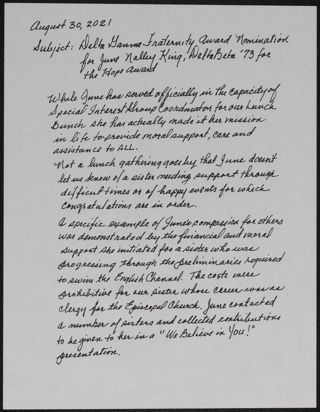 August 30, 2021
Subject: Delta Gamma Fraternity Award Nomination
for June Nalley King, Delta Beta '73 for
the Hope Award
While June has served officially in the capacity of
Special Interest Group Coordinator for our Lunch
Bunch she has actually made it her mission
in life to provide moral support, care and
assistance to ALL.
Not a lunch gathering goes by that June doesn't
let us know of a sister needing support through
difficult times or of happy events for which
congratulations are in order.
A specific example of June's compassion for others
was demonstrated by the financial and moral
support she initiated for a sister who was
progressing through the preliminaries required
to swim the English Channel. The costs were
prohibitive for our sister whose career was as
clergy for the Episcopal Church. June contacted
a number of sisters and collected contributions
to be given to her in a "We Believe in You!"
presentation.